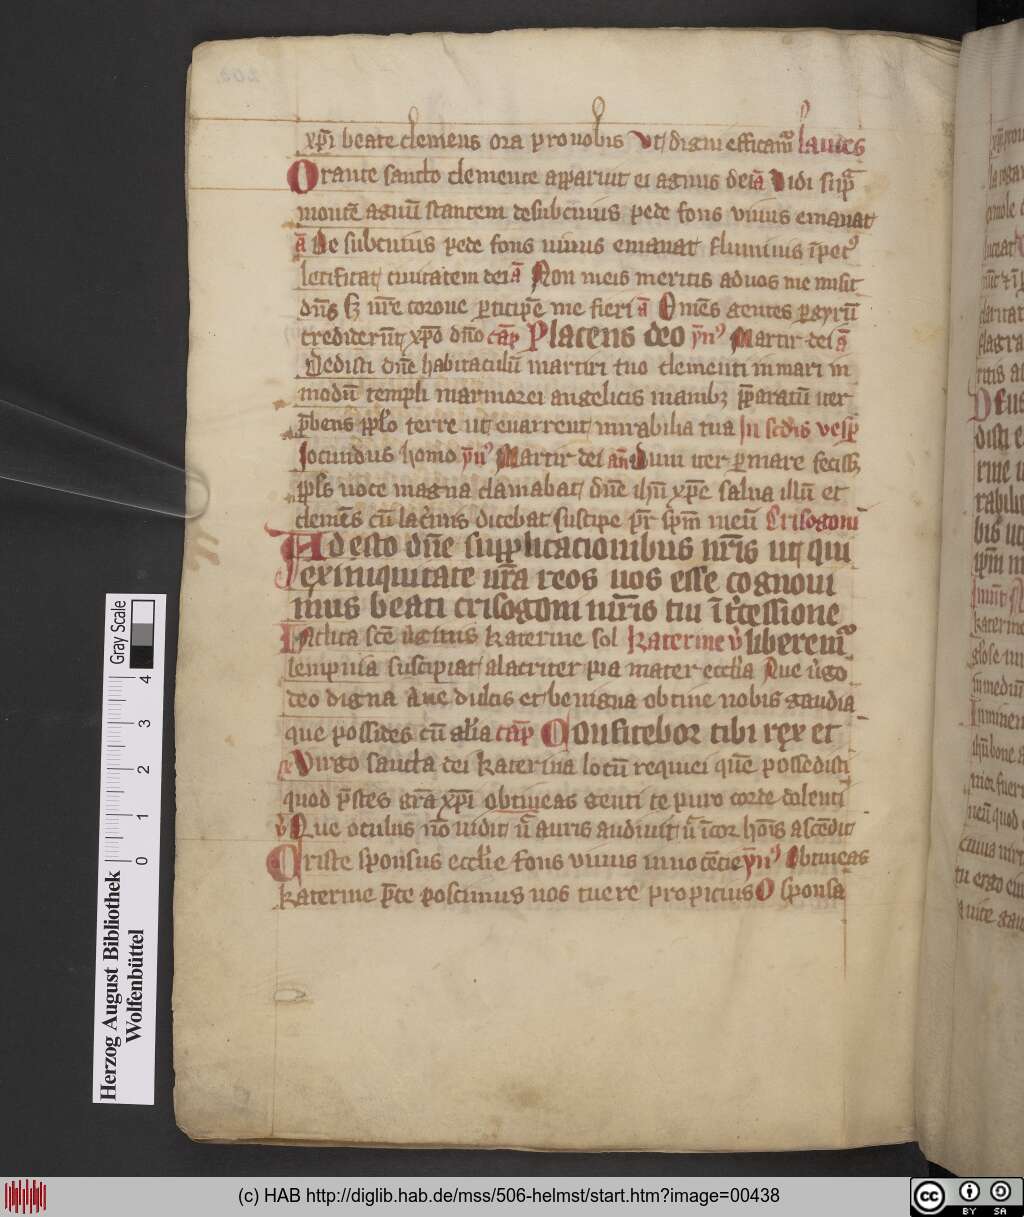 xp̄i beate clemens ora pro nobis Vt digni efficam̄ Laudes
Orante sancto clemente apparuit ei agnus dei a̅ Vidi sup̄
monte agnū stantem desub cuius pede fons viuus emanat
a̅ De sub cuius pede fons uiuus emanat fluminis īpet9
letificat ciuitatem dei a̅ Non meis meritis ad uos me misit
dn̄s sz ur̄e corone p̄ticipe me fieri a̅ Om̄es gentes p gyrū
crediderūt xp̄o dn̄o cap̄ Placens deo yn̄9 Martir dei a̅
Dedisti dn̄e habitaculū martiri tuo clementi in mari in
modū templi marmorei angelicis manibz p̄paratū iter
p̄bens pp̄lo terre ut enarrent mirabilia tua In sedis vesp̄
Iocundus homo yn̄9 Martir dei an̄ Dum iter p mare fecissz
pp̄ls uoce magna clamabat dn̄e ihū xp̄e salua illū et
clemēs cū lac̄mis dicebat suscipe pr̄ sp̄m meū Crisogoni
Adesto dn̄e supplicacionibus nr̄is ut qui
ex iniquitate nr̄a reos nos esse cognoui
mus beati crisogoni mr̄is tui īt̄cessione
Inclita scē ūginis katerine sol Katerine v̄ liberem9
lempnia suscipiat alacriter pia mater eccl̄ia Aue ūgo
deo digna Aue dulcis et benigna obtine nobis gaudia
que possides cū gl̄ia cap̄ Confitebor tibi rex et
Virgo sancta dei katerina locū requiei quē possedisti
quod p̄stes gr̄a xp̄i obtineas genti te puro corde colenti
v̄ Que oculus nō uidit n̄ auris audiuit n̄ ī cor hoīs ascēdit
Criste sponsus eccl̄ie fons viuus innocēcie yn̄9 Obtineas
katerine p̄ce poscimus nos tuere propicius O sponsa
Herzog August Bibliothek
Wolfenbüttel
0 1 2 3 4
Gray Scale
(c) HAB http://diglib.hab.de/mss/506-helmst/start.htm?image=00438
cc BY SA